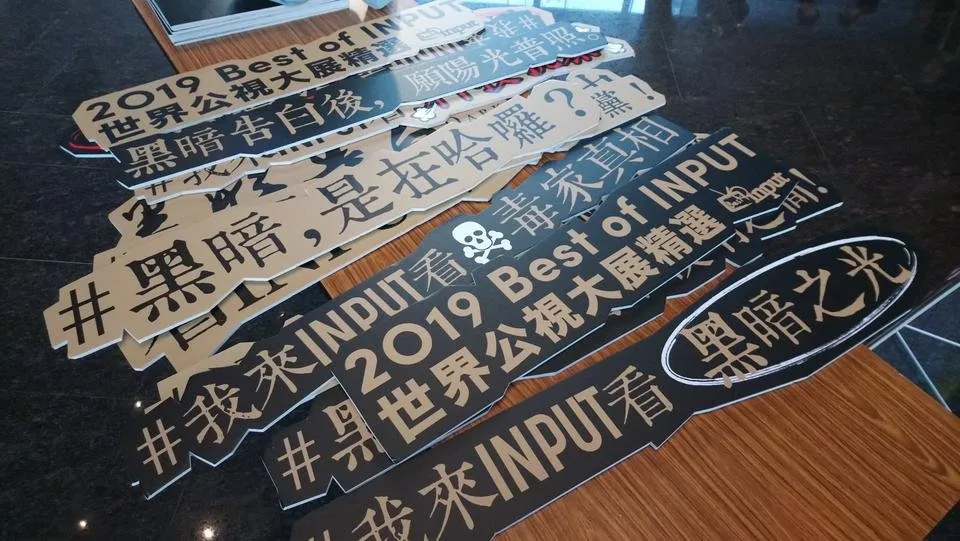 2019 Best of INPUT
世界公視大展精選
黑暗告白後，願陽光普照。
#黑暗，是在哈囉？
黨！
#我來INPUT看毒家真相
2019 Best of INPUT
世界公視大展精選
input
#黑
我來INPUT看黑暗之光